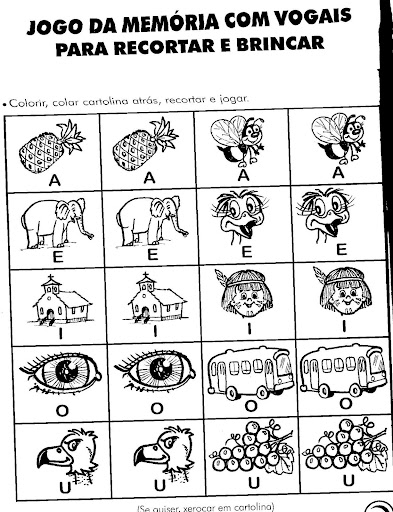 JOGO DA MEMÓRIA COM VOGAIS
PARA RECORTAR E BRINCAR
• Colorir, colar cartolina atrás, recortar e jogar.
A A A A
E E E E
I I I I
O O O O
U U U U
(Se quiser, xerocar em cartolina)